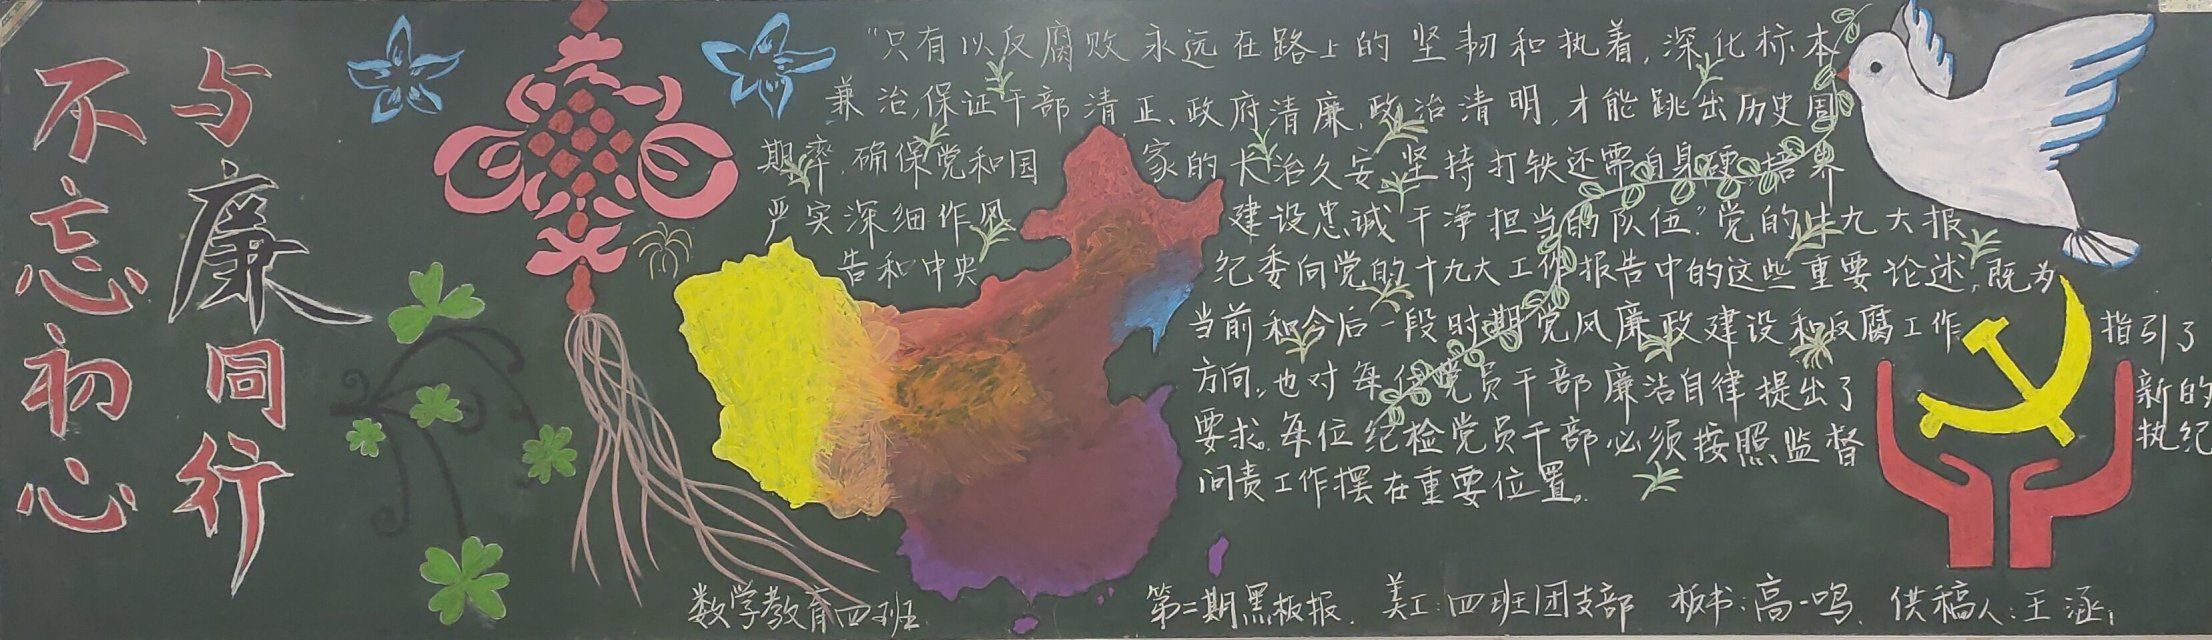 不忘初心
与廉同行
“只有以反腐败永远在路上的坚韧和执着，深化标本
兼治，保证干部清正、政府清廉，政治清明，才能跳出历史周
期率，确保党和国家的长治久安，坚持打铁还需自身硬，培养
严实深细作风 建设忠诚干净担当的队伍。”党的十九大报
告和中央 纪委向党的十九大工作报告中的这些重要论述，既为
当前和今后一段时期党风廉政建设和反腐工作 指引了
方向，也对每位党员干部廉洁自律提出了 新的
要求。每位纪检党员干部必须按照监督 执纪
问责工作摆在重要位置。
数学教育四班 第二期黑板报. 美工：四班团支部 板书：高一鸣 供稿人：王涵